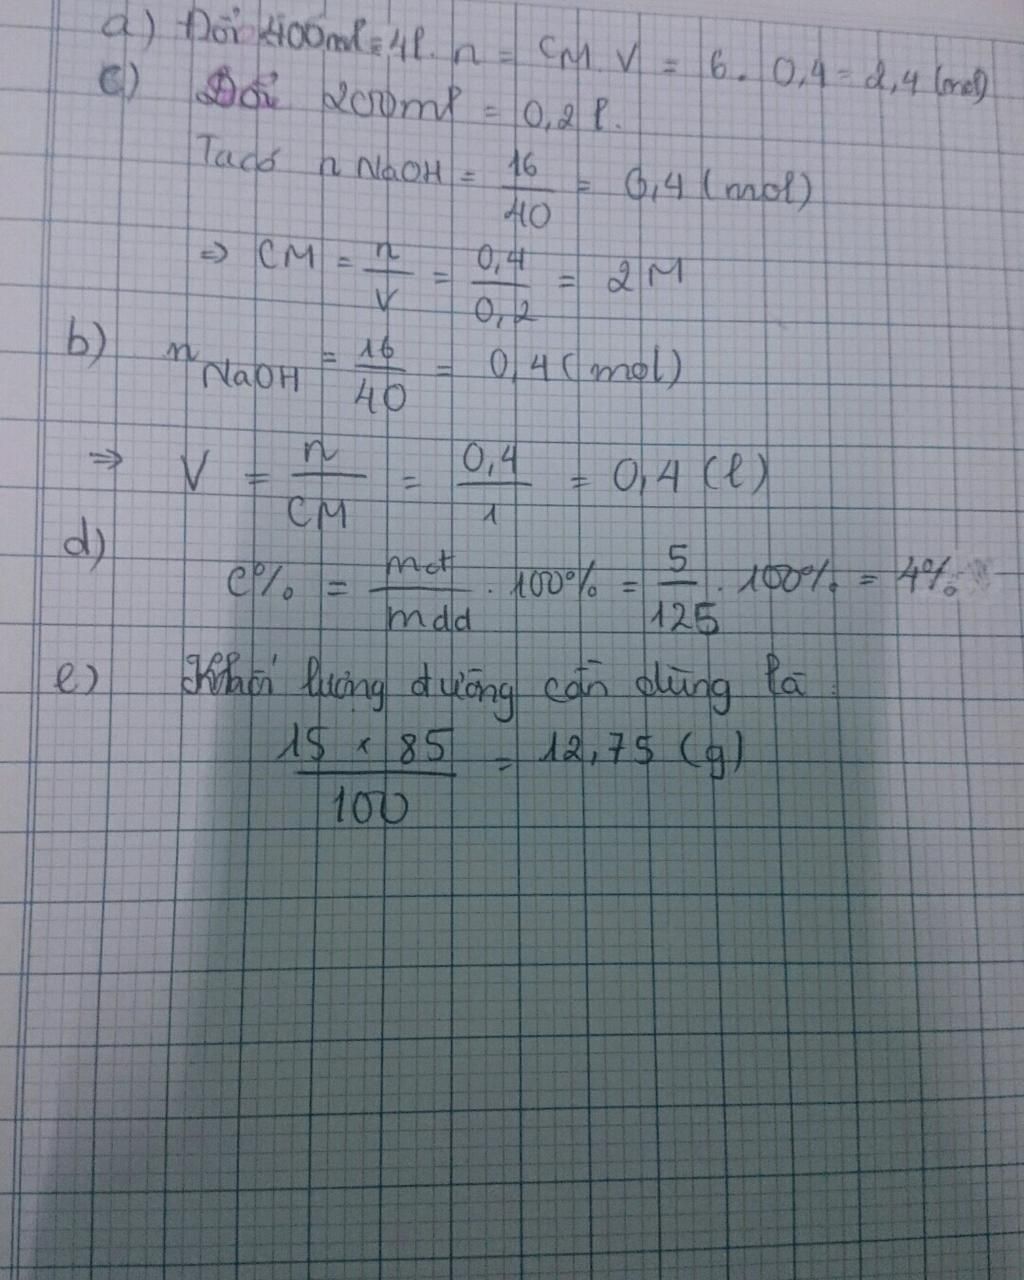 a) Đổi 400ml = 4l. n = CM. V = 6. 0,4 = 2,4 (mol)
c) Đổi 200ml = 0,2 l.
Ta có n NaOH = 16/40 = 0,4 (mol)
⇒ CM = n/V = 0,4/0,2 = 2M
b) n NaOH = 16/40 = 0,4 (mol)
⇒ V = n/CM = 0,4/1 = 0,4 (l)
d)
C% = mct/mdd . 100% = 5/125 . 100% = 4%
e) Khối lượng đường cần dùng là
15 × 85/100 = 12,75 (g)